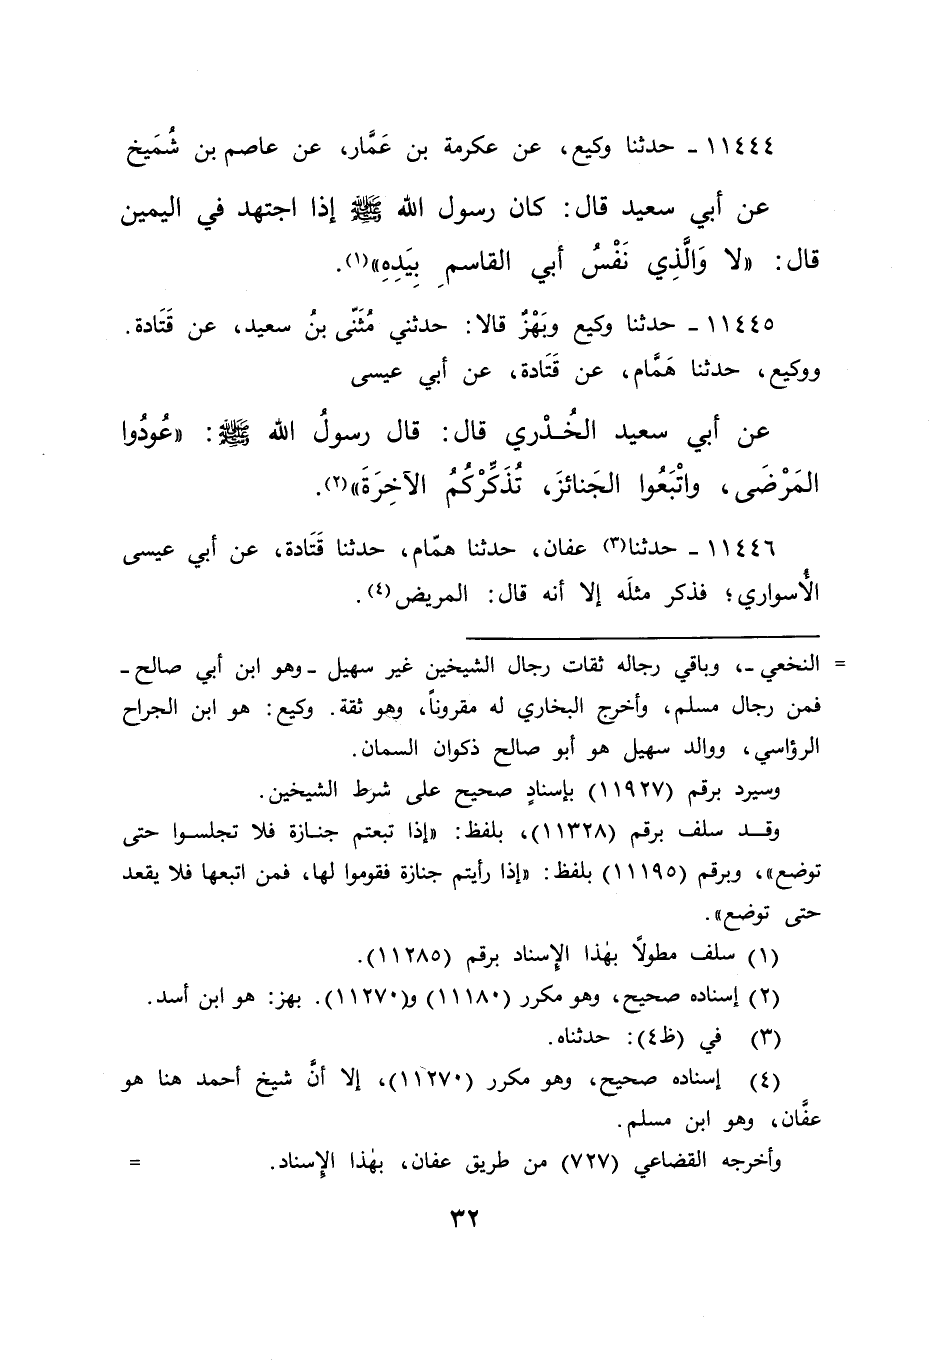 ١١٤٤٤ ـ حدثنا وكيع، عن عكرمة بن عَمَّار، عن عاصم بن شُمَيخ
عن أبي سعيد قال: كان رسول الله ﷺ إذا اجتهد في اليمين
قال: «لا وَالَّذِي نَفْسُ أبي القاسمِ بِيَدِهِ»(١).
١١٤٤٥ ـ حدثنا وكيع وبَهْزٌ قالا: حدثني مُثَنّى بنُ سعيد، عن قَتَادة.
ووكيع، حدثنا هَمَّام، عن قَتَادة، عن أبي عيسى
عن أبي سعيد الخُدْري قال: قال رسولُ الله ﷺ: «عُودُوا
المَرْضَى، واتْبَعُوا الجَنائزَ، تُذَكِّرْكُمُ الآخِرَةَ»(٢).
١١٤٤٦ ـ حدثنا(٣) عفان، حدثنا همّام، حدثنا قَتَادة، عن أبي عيسى
الأُسواري؛ فذكر مثلَه إلا أنه قال: المريض(٤).
= النخعي ـ، وباقي رجاله ثقات رجال الشيخين غير سهيل ـ وهو ابن أبي صالح ـ
فمن رجال مسلم، وأخرج البخاري له مقروناً، وهو ثقة. وكيع: هو ابن الجراح
الرؤاسي، ووالد سهيل هو أبو صالح ذكوان السمان.
وسيرد برقم (١١٩٢٧) بإسنادٍ صحيح على شرط الشيخين.
وقد سلف برقم (١١٣٢٨)، بلفظ: «إذا تبعتم جنازة فلا تجلسوا حتى
توضع»، وبرقم (١١١٩٥) بلفظ: «إذا رأيتم جنازة فقوموا لها، فمن اتبعها فلا يقعد
حتى توضع».
(١) سلف مطولاً بهٰذا الإسناد برقم (١١٢٨٥).
(٢) إسناده صحيح، وهو مكرر (١١١٨٠) و(١١٢٧٠). بهز: هو ابن أسد.
(٣) في (ظ٤): حدثناه.
(٤) إسناده صحيح، وهو مكرر (١١٢٧٠)، إلا أنَّ شيخ أحمد هنا هو
عفَّان، وهو ابن مسلم.
وأخرجه القضاعي (٧٢٧) من طريق عفان، بهٰذا الإسناد. =
٣٢